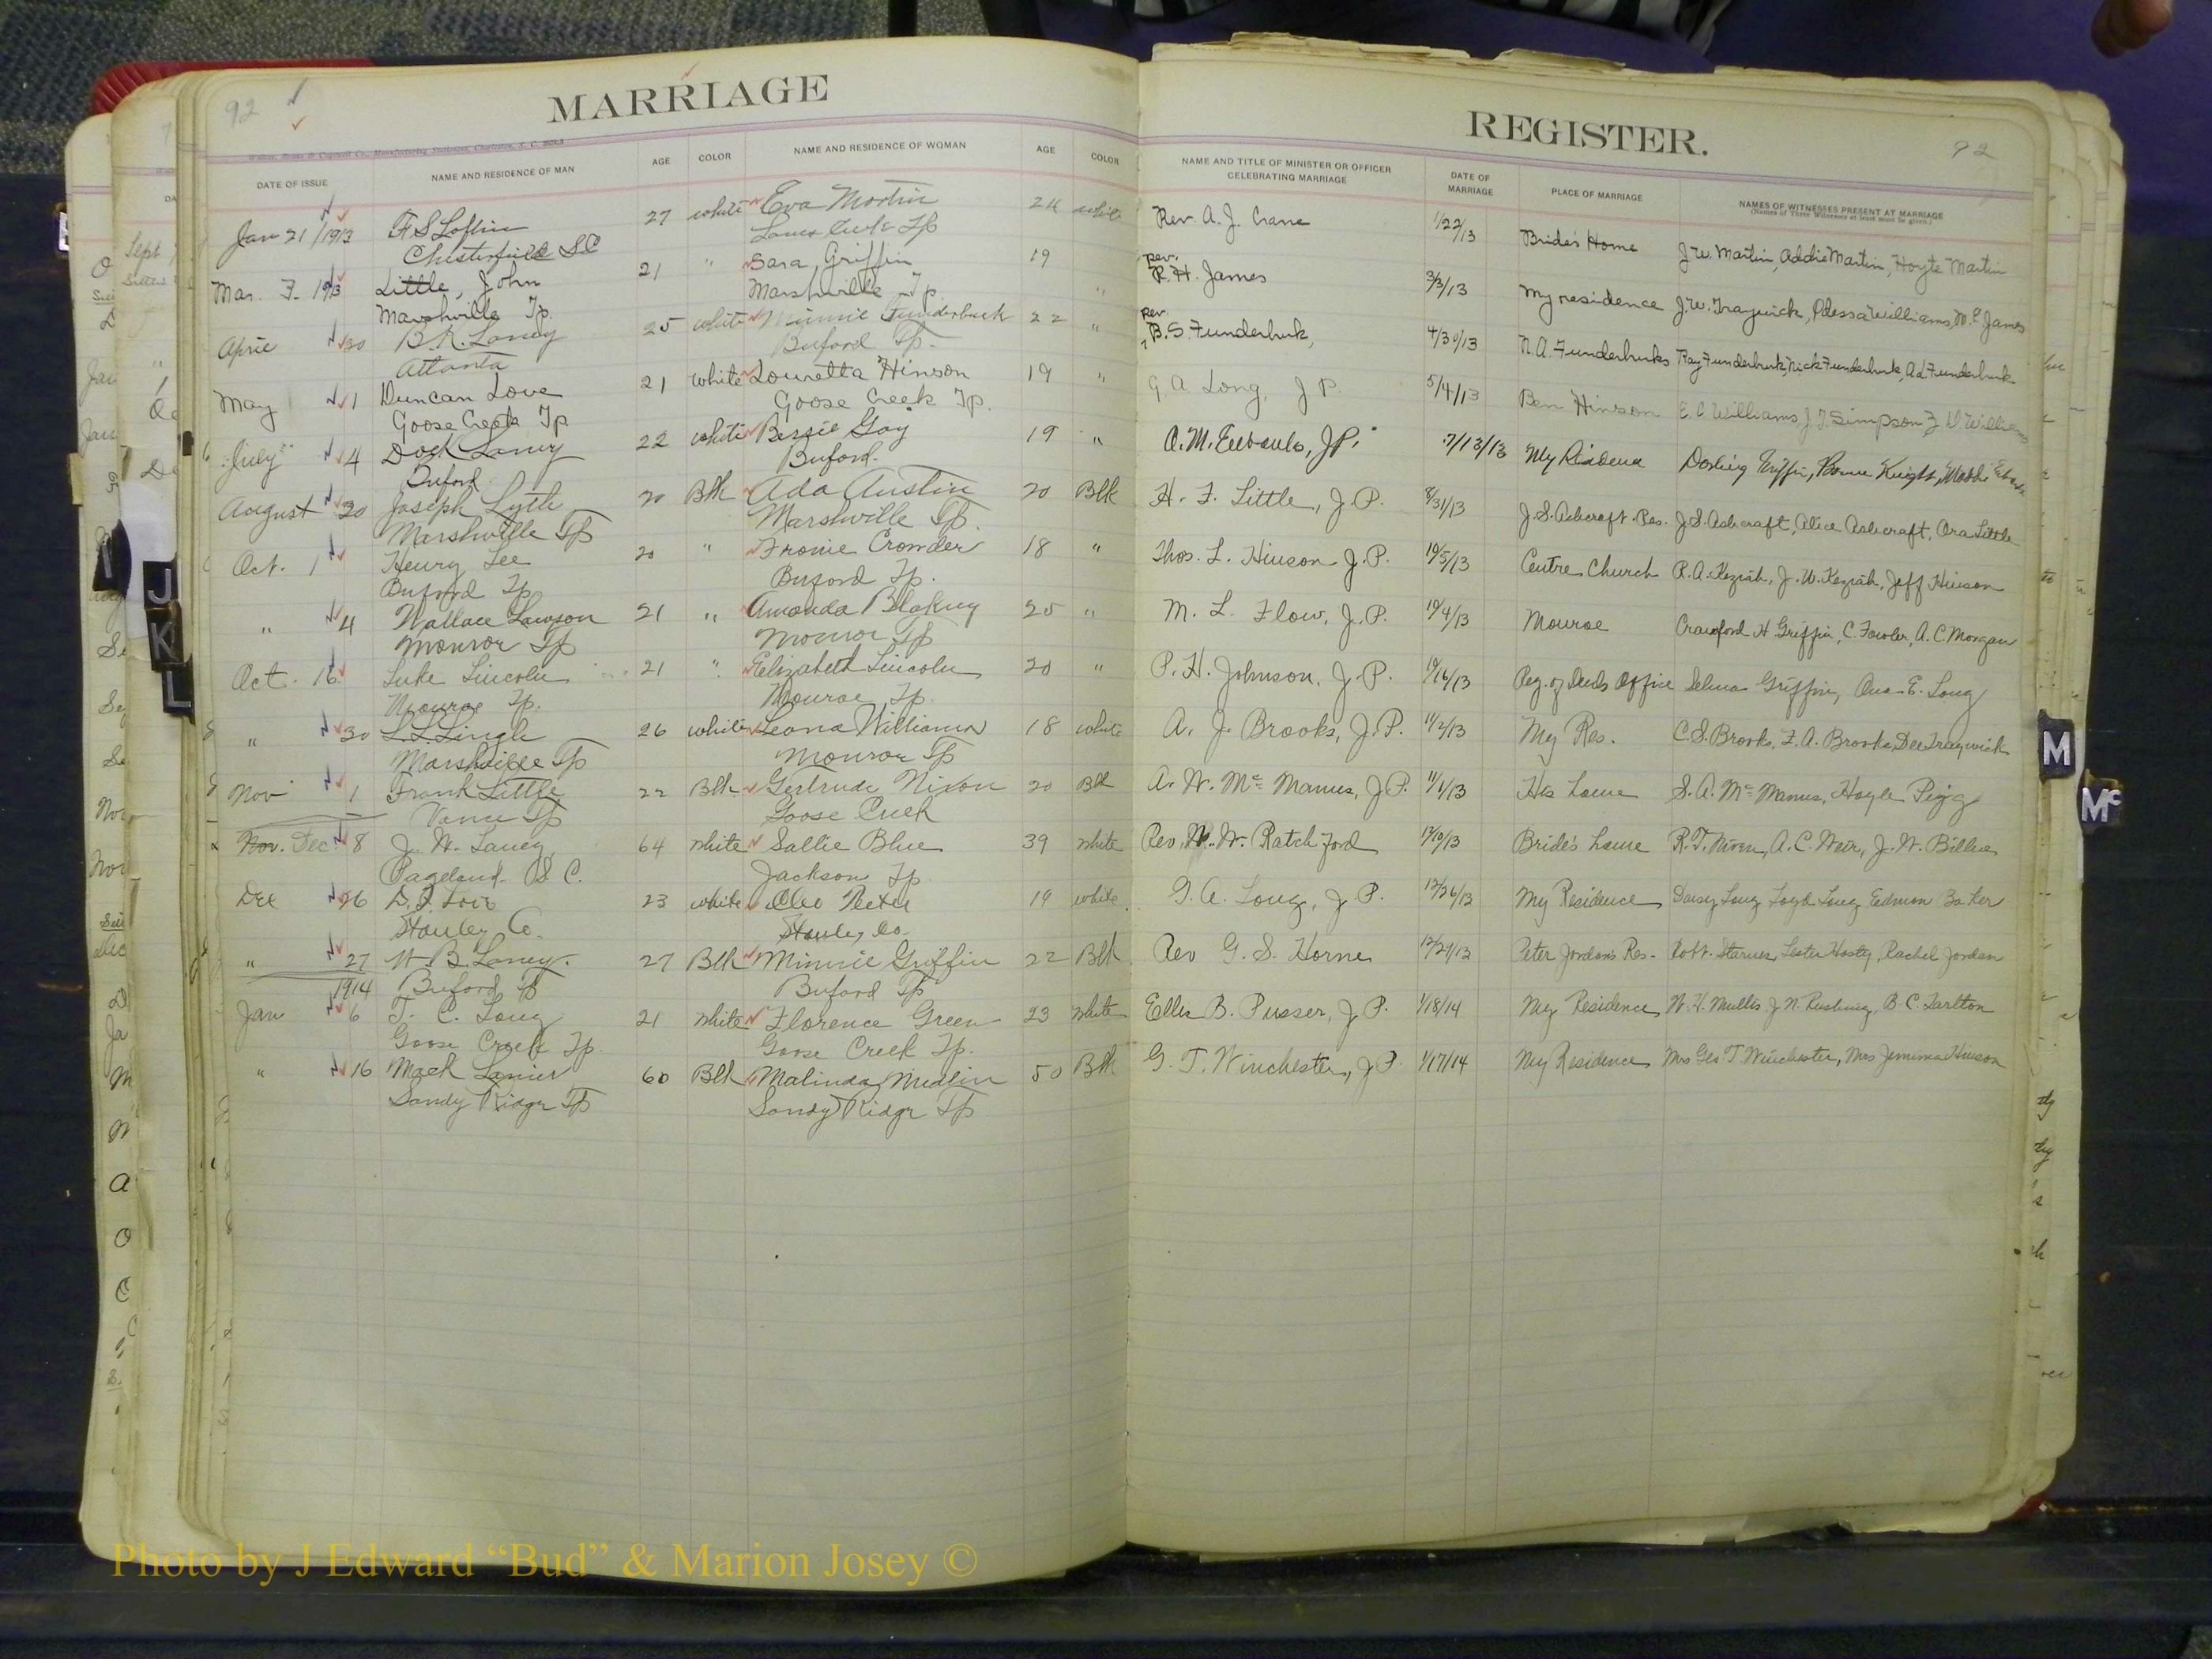 92
MARRIAGE
DATE OF ISSUE NAME AND RESIDENCE OF MAN AGE COLOR NAME AND RESIDENCE OF WOMAN AGE COLOR
REGISTER.
92
NAME AND TITLE OF MINISTER OR OFFICER CELEBRATING MARRIAGE DATE OF MARRIAGE PLACE OF MARRIAGE NAMES OF WITNESSES PRESENT AT MARRIAGE
(Names of Three Witnesses at least must be given.)
Jan 21/1913 Loflin 27 white Eva 24 white Rev. A. J. Crane 1/22/13 Bride's Home J. W. Martin, Addie Martin, Hoyte Martin
Chesterfield S.C. Lanes Creek Tp
Mar. 1913 Little, John 21 " Sara Griffin 19 " Rev. R. H. James 3/3/13 My residence J. W. Traywick, Odessa Williams, James
Marshville Tp. Marshville Tp
April 30 B. R. Laney 25 white Minnie Funderburk 22 " Rev. B. S. Funderburk, 4/30/13 N. A. Funderburks Ray Funderburk, Nick Funderburk, Ad Funderburk
Atlanta Buford Tp.
May 1 Duncan Love 21 white Louretta Hinson 19 " G A Long, J P. 5/4/13 Ben Hinson E. C Williams J. T. Simpson
Goose Creek Tp Goose Creek Tp.
July 4 Dock Laney 22 white Bessie Gay 19 " A. M. Eubanks, J P. 7/13/13 My Residence Griffin, Knight,
Buford Buford.
August 30 Joseph Lytle 20 Blk Ada Austin 20 Blk H. F. Little, J. P. 8/31/13 J. S. Ashcraft Res. J. S. Ashcraft, Alice Ashcraft, Ora Little
Marshville Tp Marshville Tp.
Oct. 1 Henry Lee 20 " Fronie Crowder 18 " Thos. L. Hinson J. P. 10/5/13 Centre Church R. A. Keziah, J. W. Keziah, Jeff Hinson
Buford Tp Buford Tp.
" 4 Wallace Lawson 21 " Amanda Blakney 20 " M. L. Flow, J. P. 10/4/13 Monroe Crawford H Griffin, C. Fowler, A. C. Morgan
Monroe Tp Monroe Tp
Oct. 16 Luke Lincoln 21 " Elizabeth Lincoln 20 " P. H. Johnson, J. P. 10/16/13 Reg. of Deeds Office Selma Griffin, E. Long
Monroe Tp. Monroe Tp.
" 30 Lingle 26 white Leona Williams 18 white A. J. Brooks, J. P. 11/2/13 My Res. C. S. Brooks, F. A. Brooks, Dee Traywick
Marshville Tp Monroe Tp
Nov 1 Frank Little 22 Blk Gertrude Nixon 20 Blk A. W. McManus, J P. 11/1/13 His home S. A. McManus, Hoyle Pigg
Vance Tp Goose Creek
Nov. Dec. 8 J. W. Laney 64 white Sallie Blue 39 white Rev. W. W. Ratchford 12/10/13 Bride's home R. T. Niven, A. C. Weir, J. W.
Pageland S C. Jackson Tp
Dec 26 23 white Cleo 19 white G. A. Long, J P. 12/26/13 My Residence Daisy Long Loyd Long Edmon Baker
Stanley Co. Stanley Co.
" 27 W. B. Laney. 27 Blk Minnie Griffin 22 Blk Rev G. S. Horne 12/27/13 Peter Jordan's Res. Robt. Starnes, Lester Rachel Jordan
1914 Buford Tp Buford Tp
Jan 6 T. C. Long 21 white Florence Green 23 white Ellis B. Pusser, J P. 1/18/14 My Residence W. H. Mullis J N. Rushing, B C. Tarlton
Goose Creek Tp. Goose Creek Tp.
" 16 Mack Lanier 60 Blk Malinda Medlin 50 Blk G. T. Winchester, J P. 1/17/14 My Residence Mrs Geo T. Winchester, Mrs Jemima Hinson
Sandy Ridge Tp Sandy Ridge Tp
J
K
L
M
Mc
Photo by J Edward “Bud” & Marion Josey ©